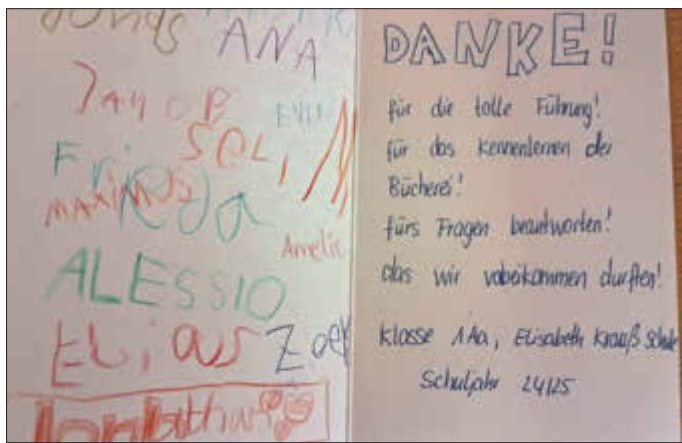 Jonas
ANA
JAKOB
SELI
Frieda
MAXIMUS
Amelie
ALESSIO
ELias
Zoey
DANKE!
für die tolle Führung!
für das Kennenlernen der
Bücherei!
fürs Fragen beantworten!
das wir vobeikommen durften!
Klasse 1Aa, Elisabeth Krauß Schule
Schuljahr 24/25